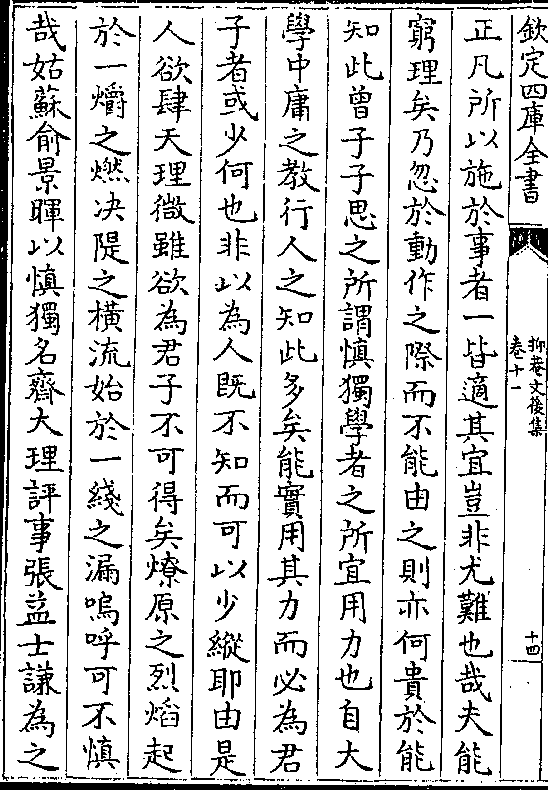 欽定四庫全書
抑菴文後集
卷十一
十四
正凡所以施於事者一皆適其宜豈非尤難也哉夫能
窮理矣乃忽於動作之際而不能由之則亦何貴於能
知此曾子子思之所謂慎獨學者之所宜用力也自大
學中庸之教行人之知此多矣能實用其力而必為君
子者或少何也非以為人既不知而可以少縱耶由是
人欲肆天理微雖欲為君子不可得矣燎原之烈熖起
於一爝之燃决隄之橫流始於一綫之漏嗚呼可不慎
哉姑蘇俞景暉以慎獨名齋大理評事張益士謙為之